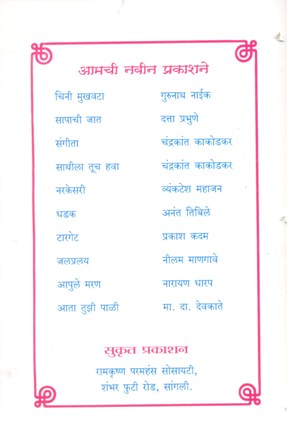 आमची नवीन प्रकाशने
चिनी मुखवटा गुरुनाथ नाईक
सापाची जात दत्ता प्रभुणे
संगीता चंद्रकांत काकोडकर
साथीला तूच हवा चंद्रकांत काकोडकर
नरकेसरी व्यंकटेश महाजन
धडक अनंत तिबिले
टारगेट प्रकाश कदम
जलप्रलय नीलम माणगावे
आपुले मरण नारायण धारप
आता तुझी पाळी मा. दा. देवकाते
सुकृत प्रकाशन
रामकृष्ण परमहंस सोसायटी,
शंभर फुटी रोड, सांगली.